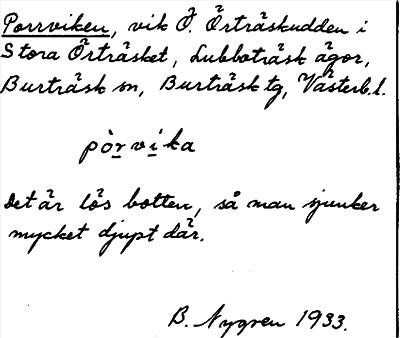 Porrviken, vik Ö. Örträskudden i
Stora Örträsket, Lubboträsk ägor,
Burträsk sn, Burträsk tg, Västerb.l.
pòr̲vi̲ka
Det är lös botten, så man sjunker
mycket djupt där.
B. Nygren 1933.